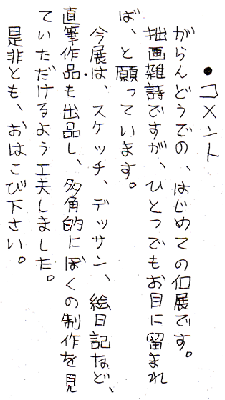 ●コメント
がらんどうでの、はじめての個展です。
拙画雑詩ですが、ひとつでもお目に留まれ
ば、と願っています。
今展は、スケッチ、デッサン、絵日記など、
直筆作品も出品し、多角的にぼくの制作を見
ていただけるよう工夫しました。
是非とも、おはこび下さい。